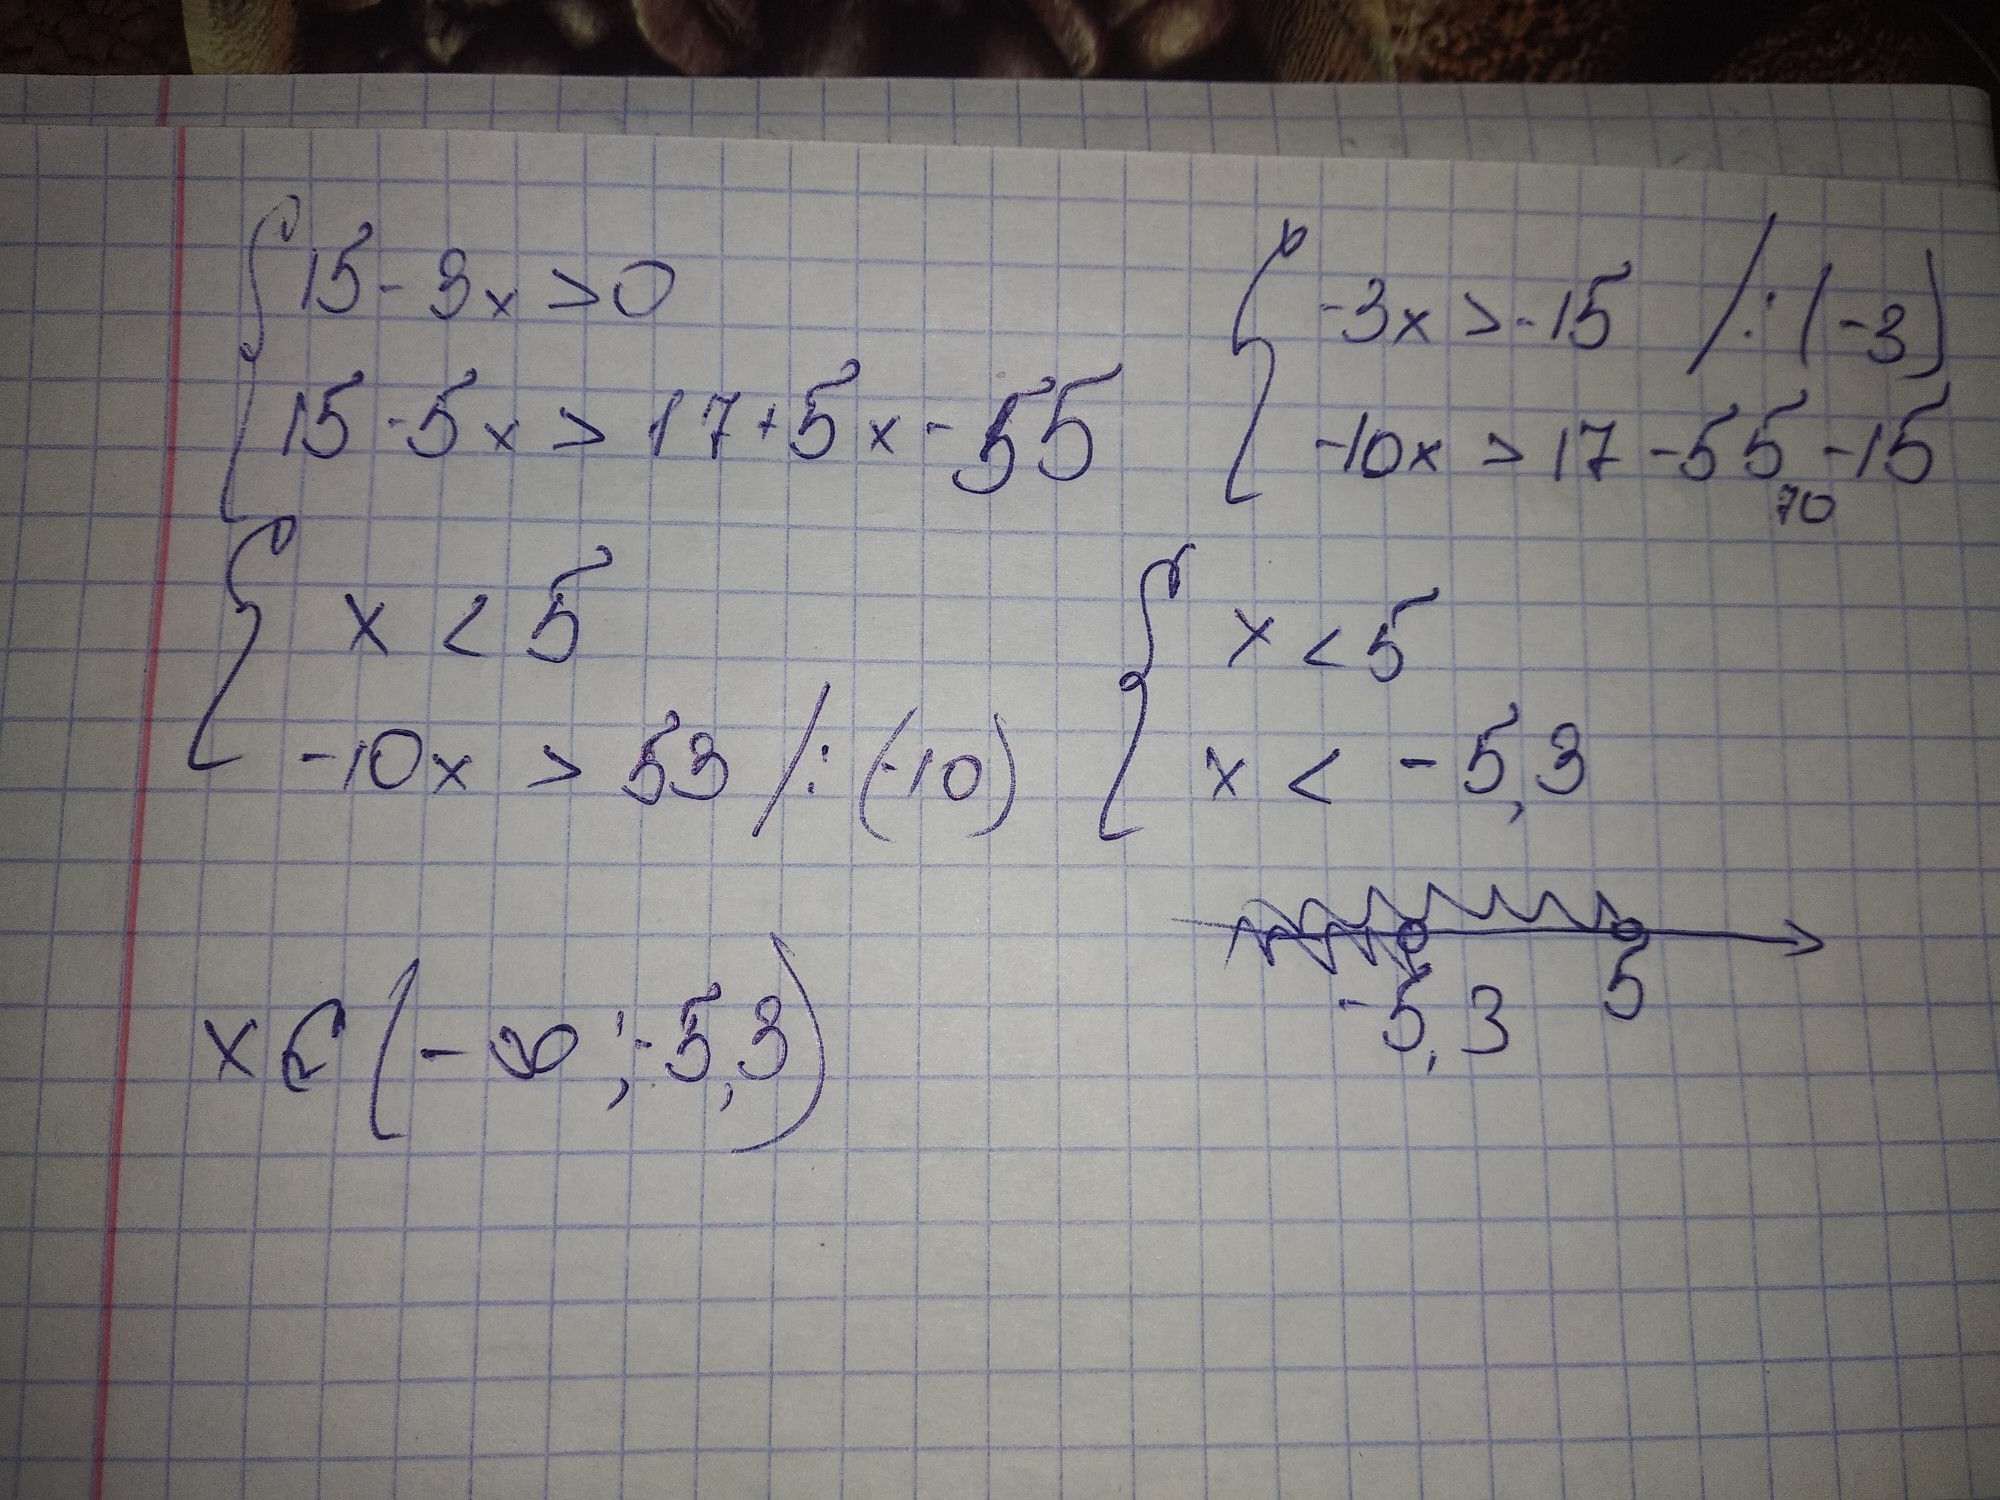 15 - 3x > 0
15 - 5x > 17 + 5x - 55
-3x > -15 / : (-3)
-10x > 17 - 55 - 15
70
x < 5
-10x > 53 / : (-10)
x < 5
x < - 5,3
-5,3 5
x ∈ (-∞; -5,3)